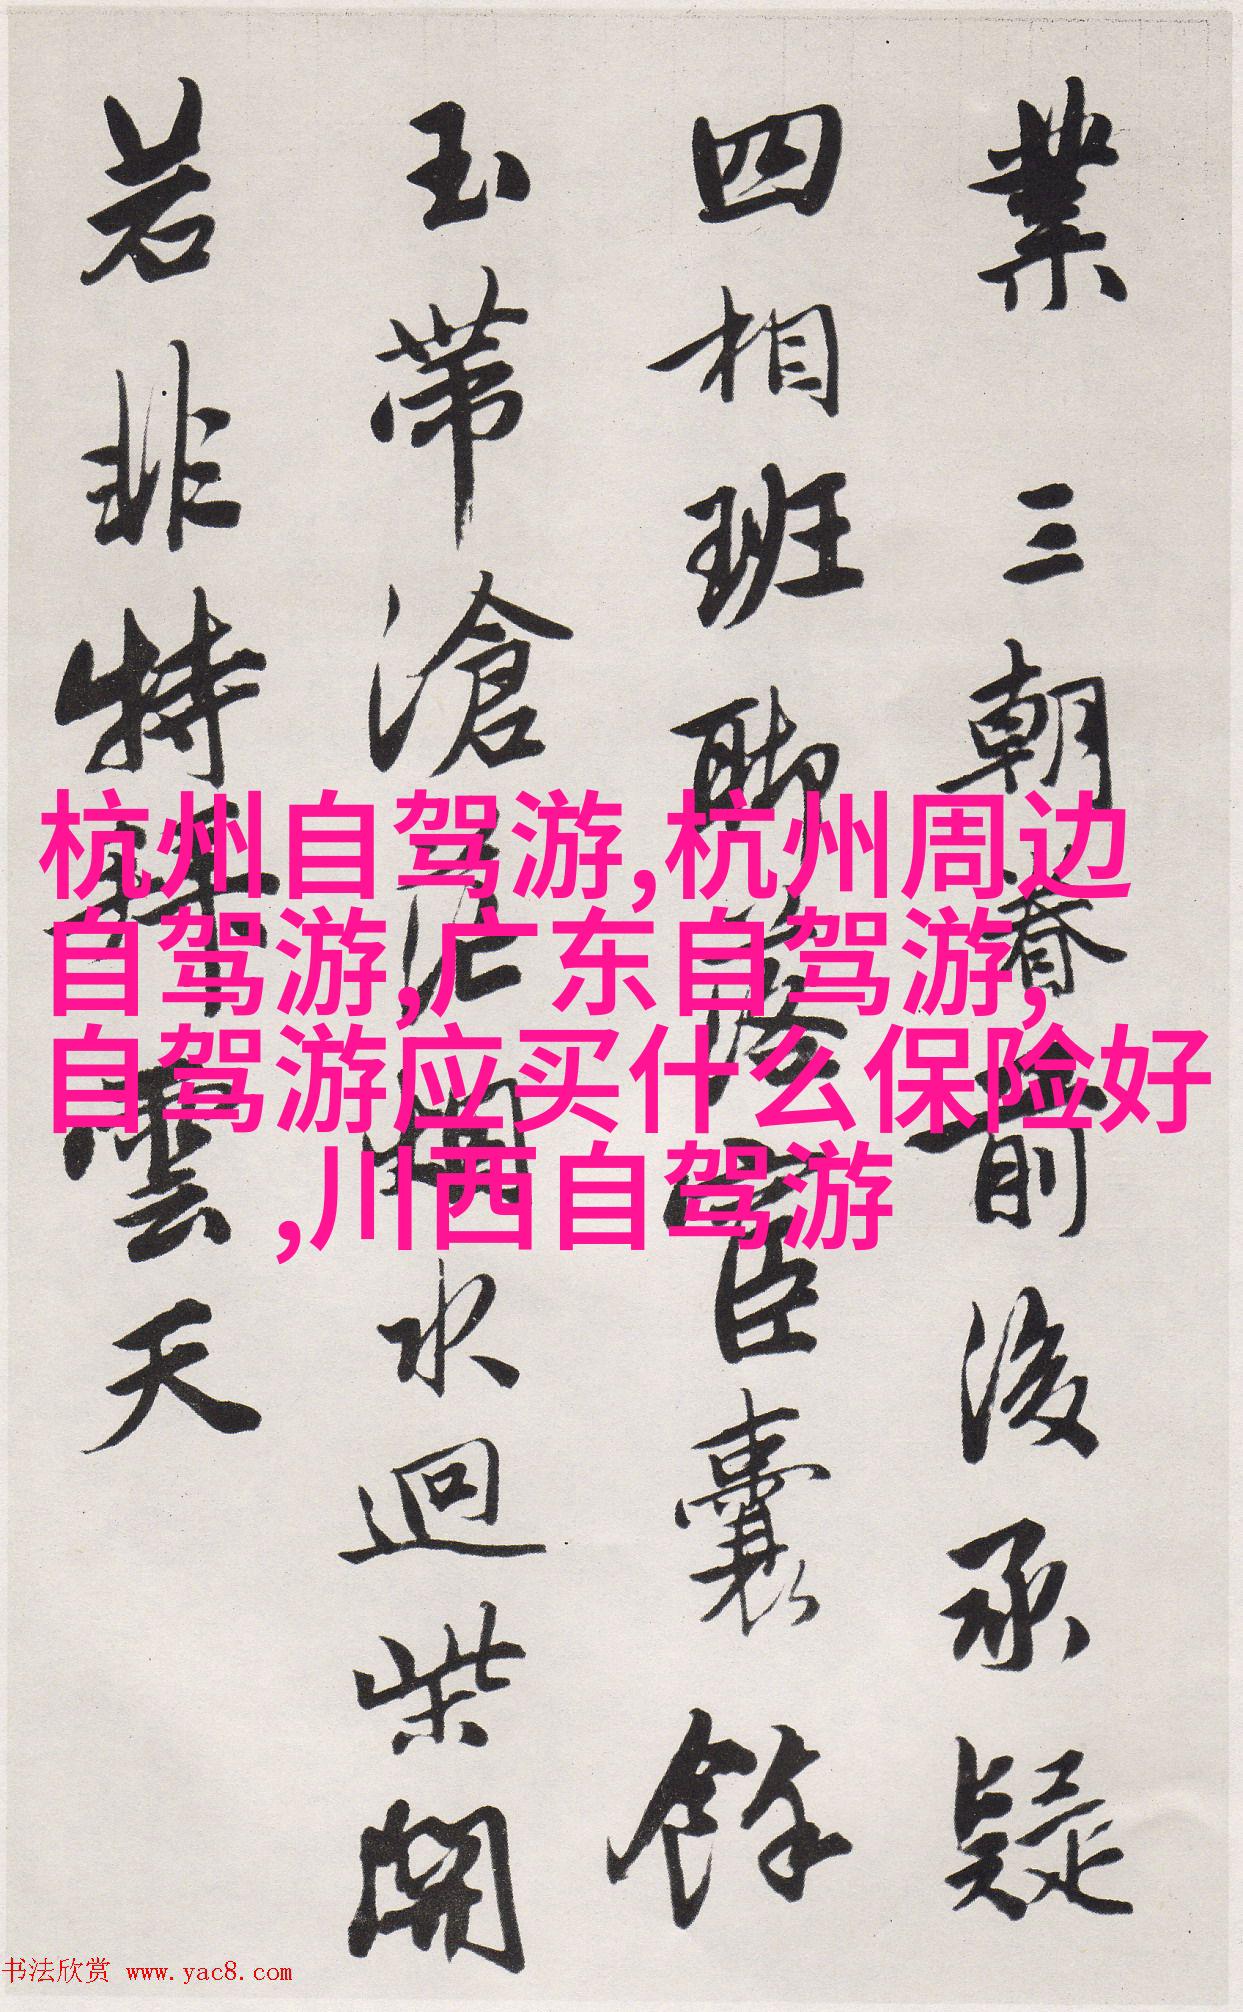 業 三朝春前後承疑
四相班聯臣囊餘
玉帶滄水迴柴関
若非特雲天
杭州自驾游,杭州周边
自驾游,广东自驾游,
自驾游应买什么保险好
,川西自驾游
书法欣赏 www.yac8.com